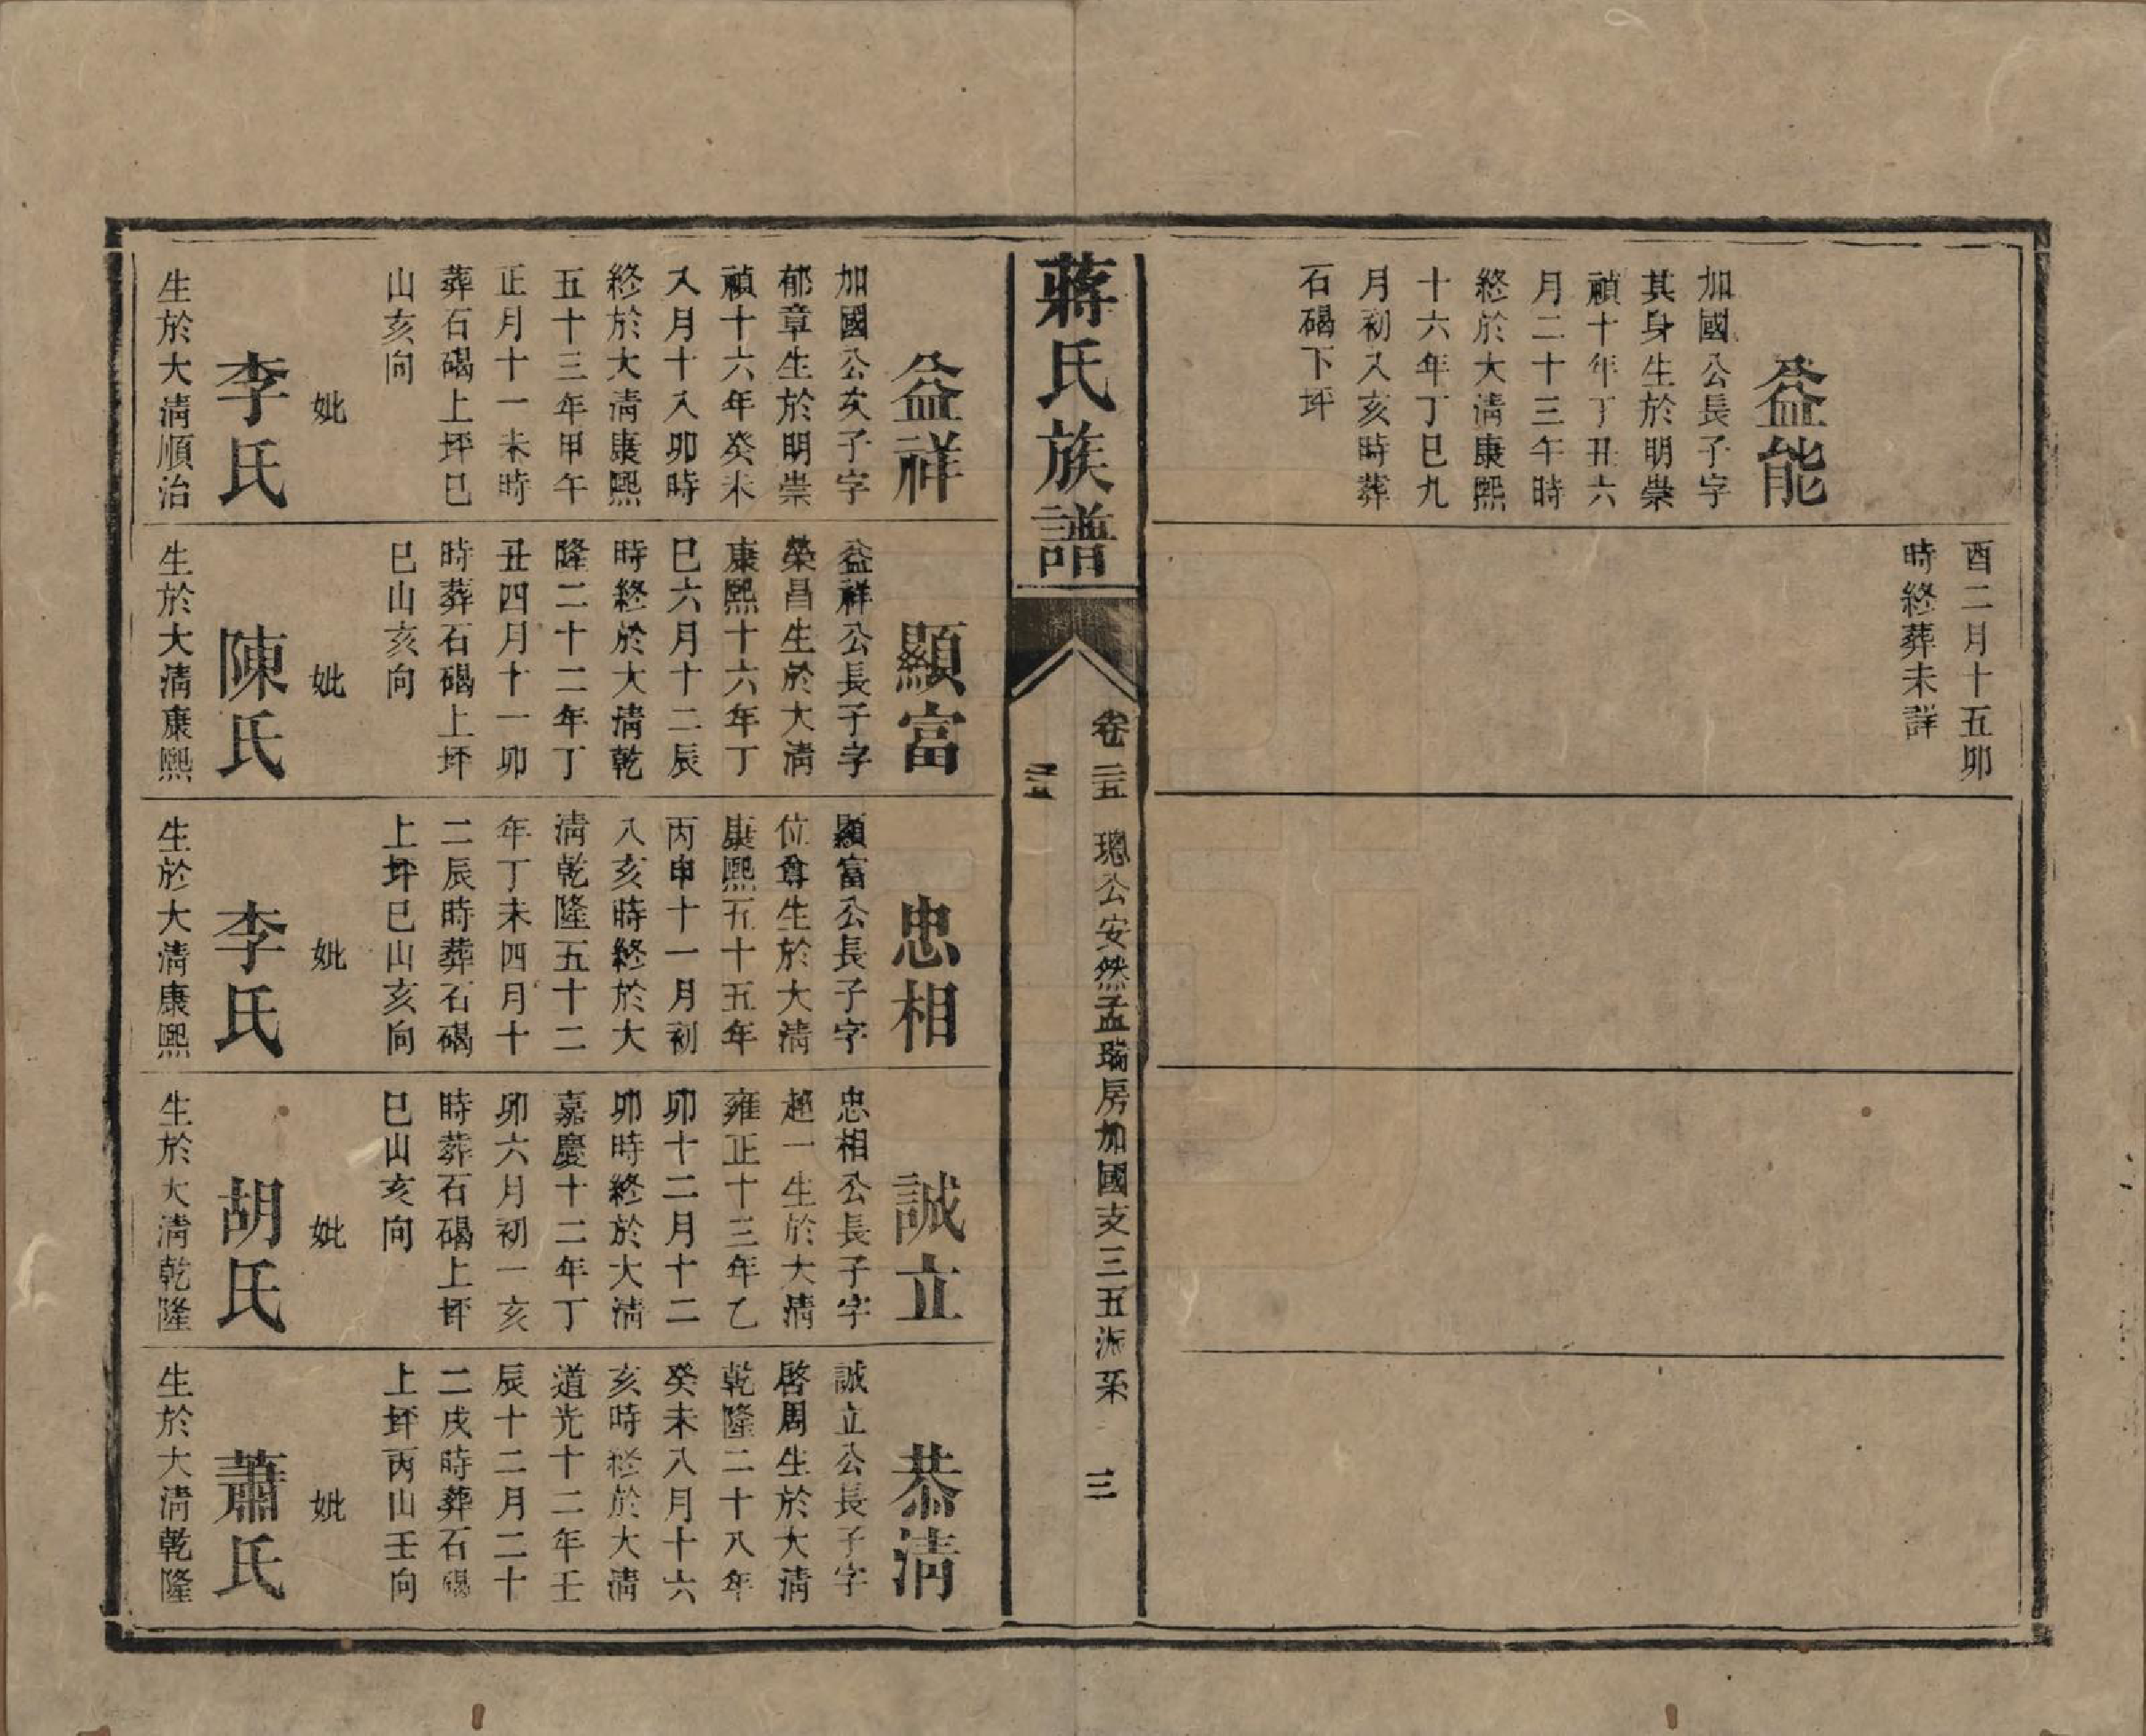 益能
加國公長子字
其身生於明崇
禎十年丁丑六
月二十三午時
終於大清康熙
十六年丁巳九
月初八亥時葬
石碣下坪
酉二月十五卯
時終葬未詳
蔣氏族譜
卷二五 璁公安然孟瑞房加國支三五派系 三
益祥
加國公次子字
郁章生於明崇
禎十六年癸未
八月十八卯時
終於大清康熙
五十三年甲午
正月十一未時
葬石碣上坪巳
山亥向
妣
李氏
生於大清順治
顯富
益祥公長子字
榮昌生於大清
康熙十六年丁
巳六月十二辰
時終於大清乾
隆二十二年丁
丑四月十一卯
時葬石碣上坪
巳山亥向
妣
陳氏
生於大清康熙
忠相
顯富公長子字
位尊生於大清
康熙五十五年
丙申十一月初
八亥時終於大
清乾隆五十二
年丁未四月十
二辰時葬石碣
上坪巳山亥向
妣
李氏
生於大清康熙
誠立
忠相公長子字
越一生於大清
雍正十三年乙
卯十二月十二
卯時終於大清
嘉慶十二年丁
卯六月初一亥
時葬石碣上坪
巳山亥向
妣
胡氏
生於大清乾隆
恭清
誠立公長子字
啓周生於大清
乾隆二十八年
癸未八月十六
亥時終於大清
道光十二年壬
辰十二月二十
二戌時葬石碣
上坪丙山壬向
妣
蕭氏
生於大清乾隆